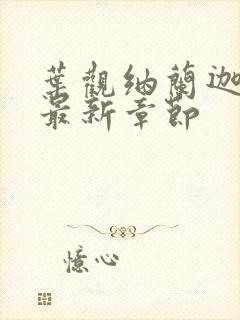 葉觀納蘭迦
最新章節
憶心